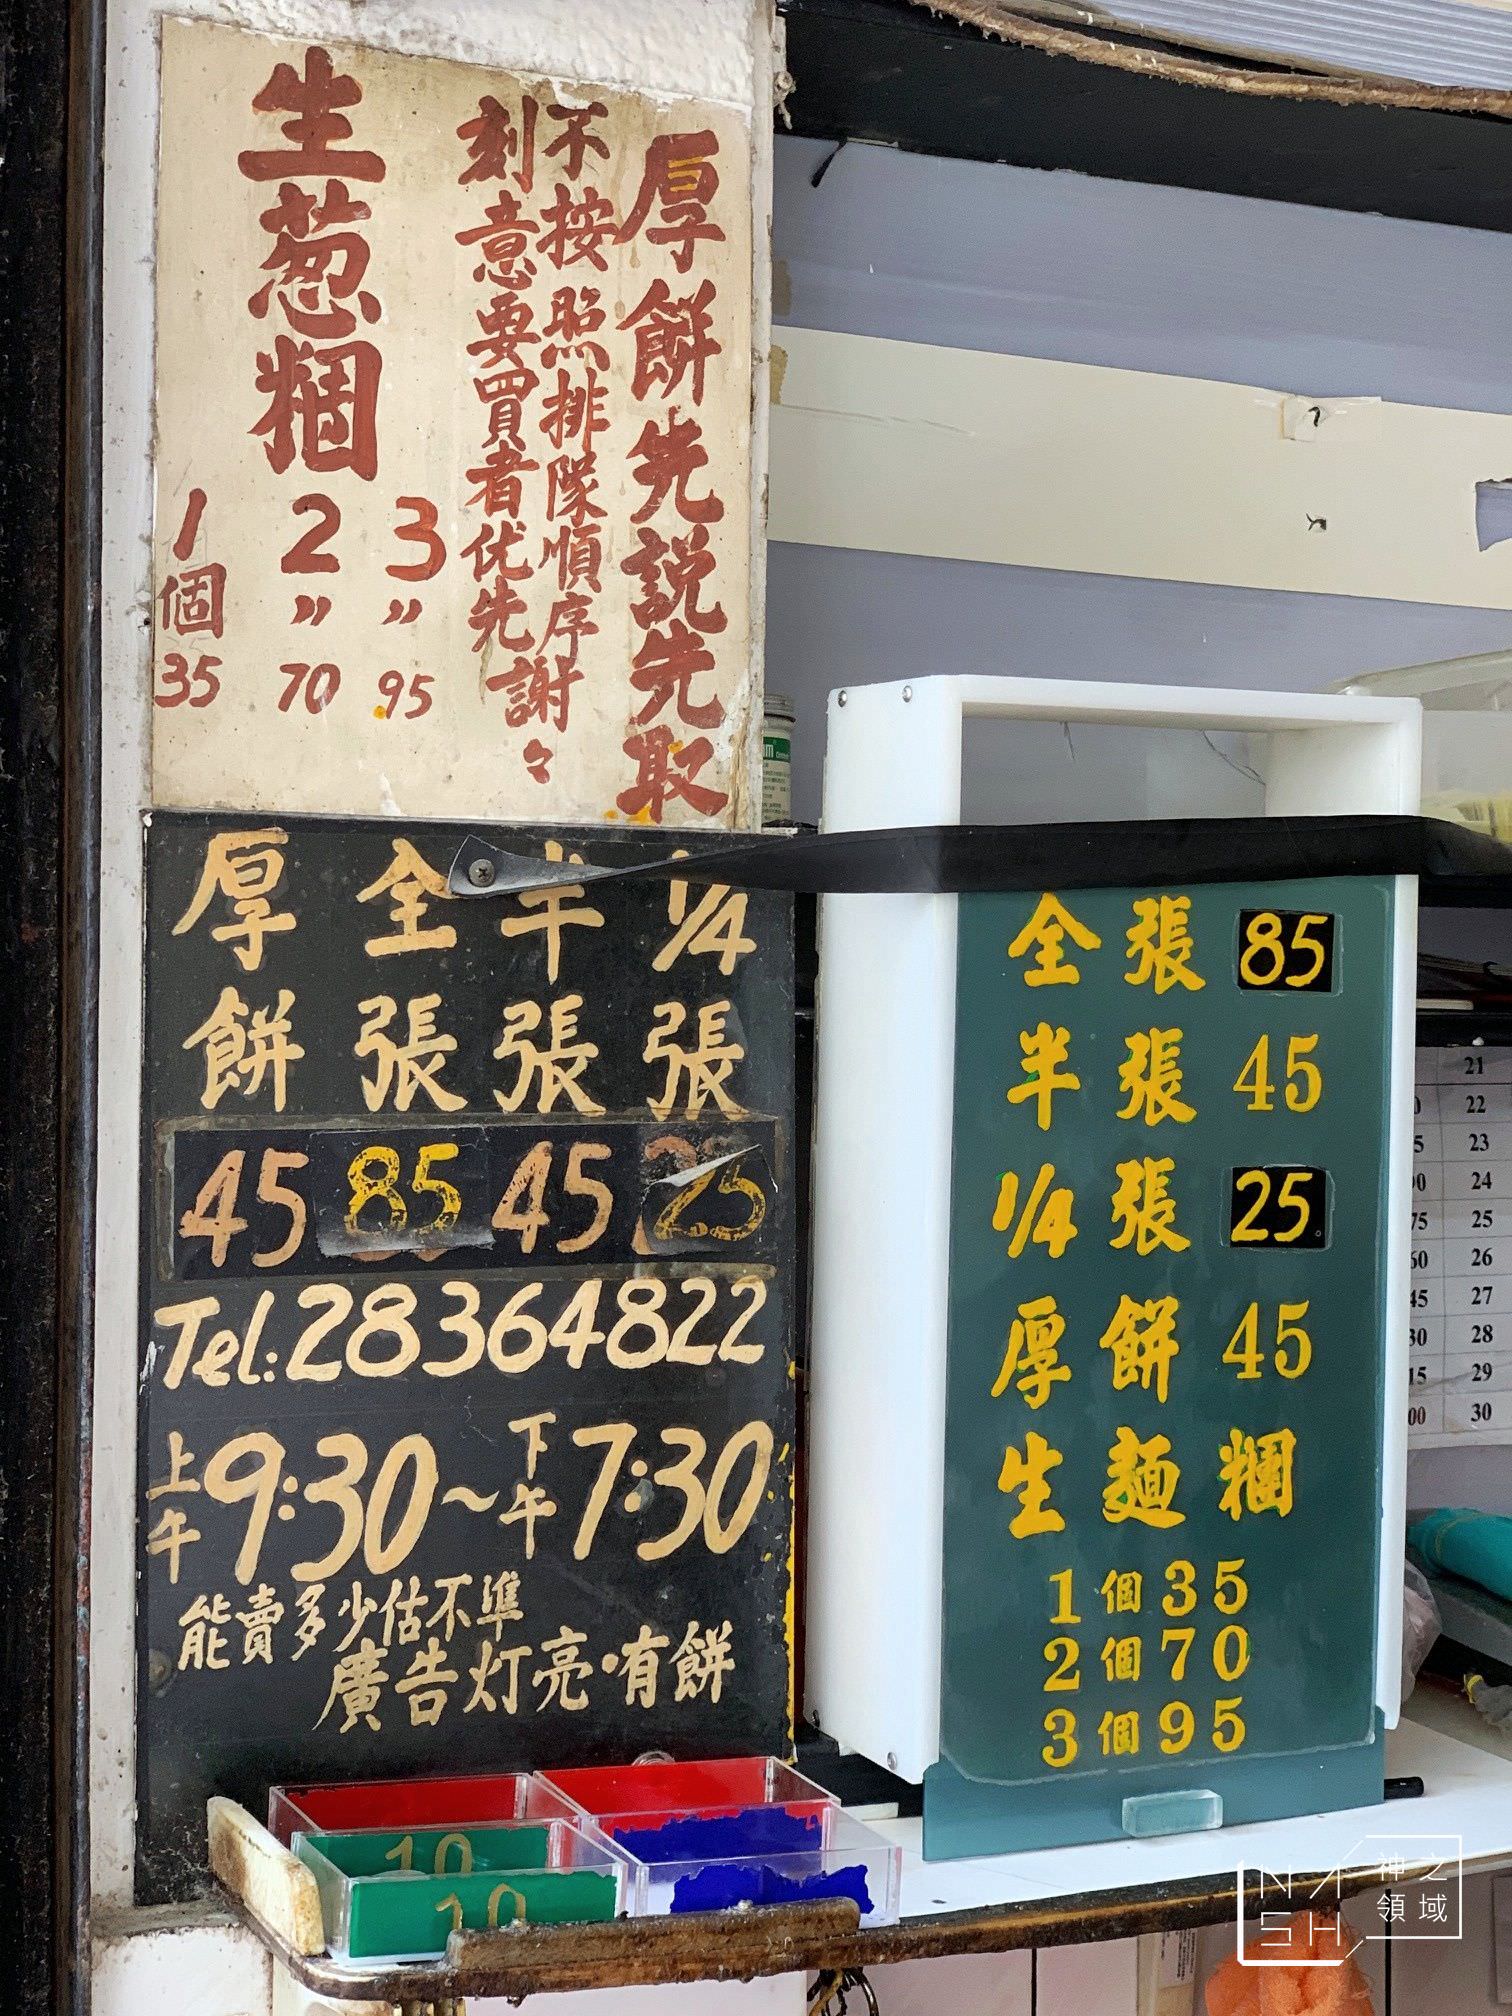 厚餅先說先取
不按照排隊順序
刻意要買者优先謝々
生葱粿
1個35
2〃70
3〃95
厚餅45
全張85
半張45
1/4張25
Tel:28364822
上午9:30~下午7:30
能賣多少估不準
廣告灯亮·有餅
全張85
半張45
1/4張25
厚餅45
生麵糰
1個35
2個70
3個95
10
10
21
22
23
24
25
26
27
28
29
30
NASH
神之
領域